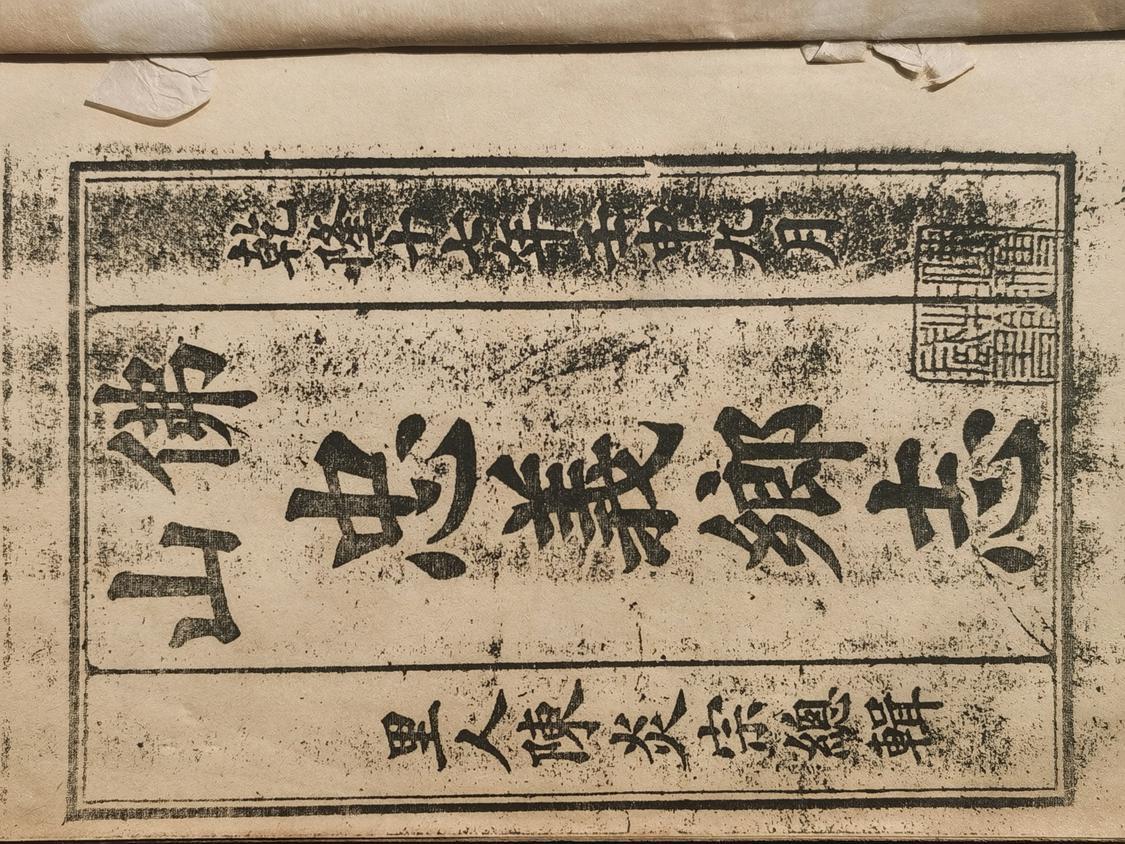 乾隆十七年壬申九月
佛山
忠義鄉志
里人陳炎宗總輯